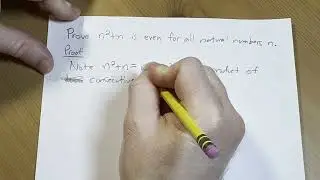 Prove n²+n is even for all natural numbers n.
Proof:
Note n²+n = product of
consecutive